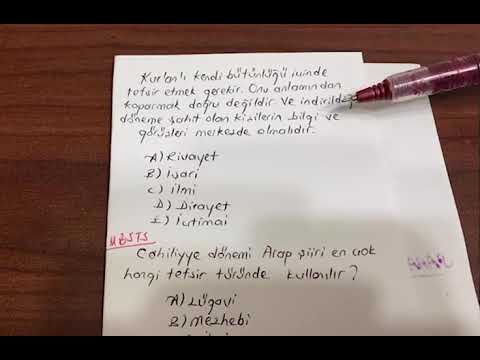 Kur'an'ı kendi bütünlüğü içinde
tefsir etmek gerekir. Onu anlamından
koparmak doğru değildir. Ve indirildiği
döneme şahit olan kişilerin bilgi ve
görüşleri merkezde olmalıdır.
A) Rivayet
B) İşari
C) İlmi
D) Dirayet
E) İçtimai
MBSTS
Cahiliyye dönemi Arap şiiri en çok
hangi tefsir türünde kullanılır?
A) Lügavi
B) Mezhebi